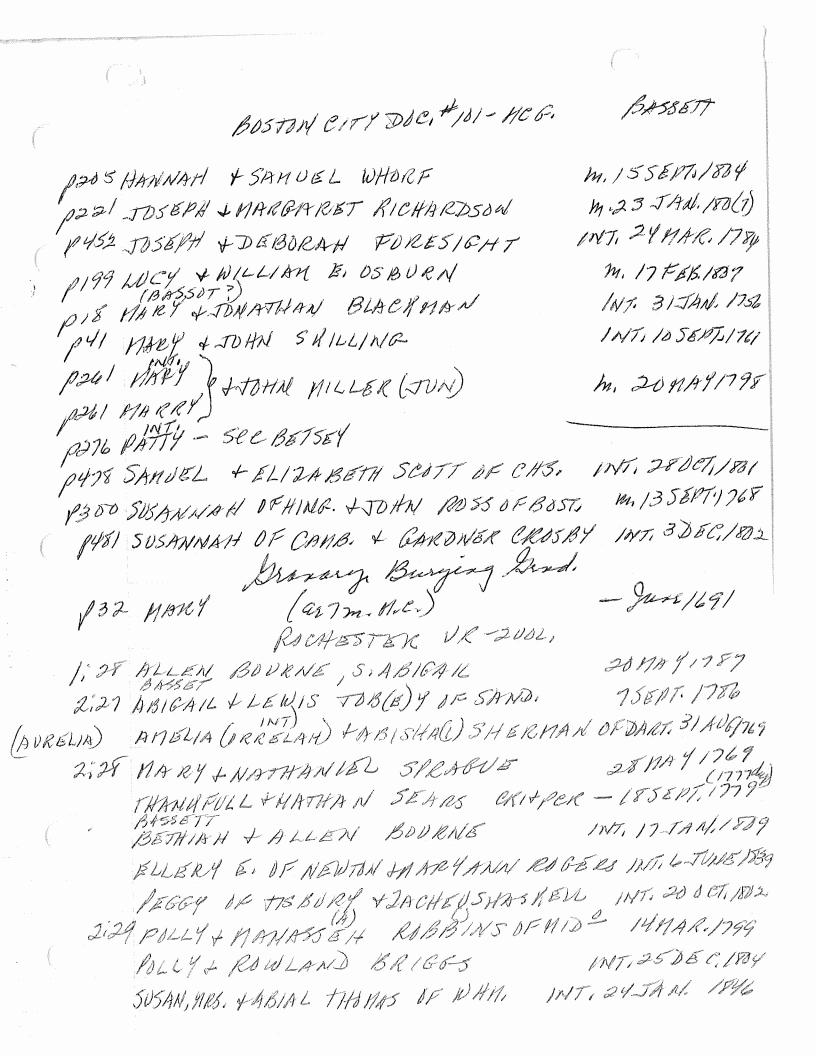 BOSTON CITY DOC. #101 - MCG. BASSETT
p205 HANNAH & SAMUEL WHORF m. 15 SEPT. 1804
p221 JOSEPH & MARGARET RICHARDSON m. 23 JAN. 180(1)
p452 JOSEPH & DEBORAH FORESIGHT INT. 24 MAR. 1784
p199 LUCY & WILLIAM E. OSBURN m. 17 FEB. 1837
(BASSOT?)
p18 MARY & JONATHAN BLACKMAN INT. 31 JAN. 1756
p41 MARY & JOHN SKILLING INT. 10 SEPT. 1761
INT.
p261 MARY
} & JOHN MILLER (JUN) m. 20 MAY 1798
p261 MARRY
INT.
p276 PATTY - SEE BETSEY
p478 SAMUEL & ELIZABETH SCOTT OF CHS. INT. 28 OCT. 1801
p300 SUSANNAH OF HING. & JOHN ROSS OF BOST. m. 13 SEPT. 1768
p481 SUSANNAH OF CAMB. & GARDNER CROSBY INT. 3 DEC. 1802
Granary Burying Grnd.
p32 MARY (ae 7 m. M.C.) - June 1691
ROCHESTER VR - 2 VOL.
1:28 ALLEN BOURNE, S. ABIGAIL 20 MAY 1787
BASSET
2:27 ABIGAIL & LEWIS TOB(E)Y OF SAND. 7 SEPT. 1786
INT
(AURELIA) AMELIA (ORRELAH) & ABISHA(I) SHERMAN OF DART. 31 AUG 1769
2:28 MARY & NATHANIEL SPRAGUE 28 MAY 1769
THANKFULL & NATHAN SEARS CR1 & PCR - 18 SEPT. 1779 (1777 dup)
BASSETT
BETHIAH & ALLEN BOURNE INT. 17 JAN. 1809
ELLERY E. OF NEWTON & MARY ANN ROGERS INT. 6 JUNE 1839
PEGGY OF TISBURY & ZACHEUS HASKELL INT. 20 OCT. 1802
(A)
2:29 POLLY & MANASSEH ROBBINS OF MIDo 14 MAR. 1799
POLLY & ROWLAND BRIGGS INT. 25 DEC. 1804
SUSAN, MRS. & ABIAL THOMAS OF WHM. INT. 24 JAN. 1846